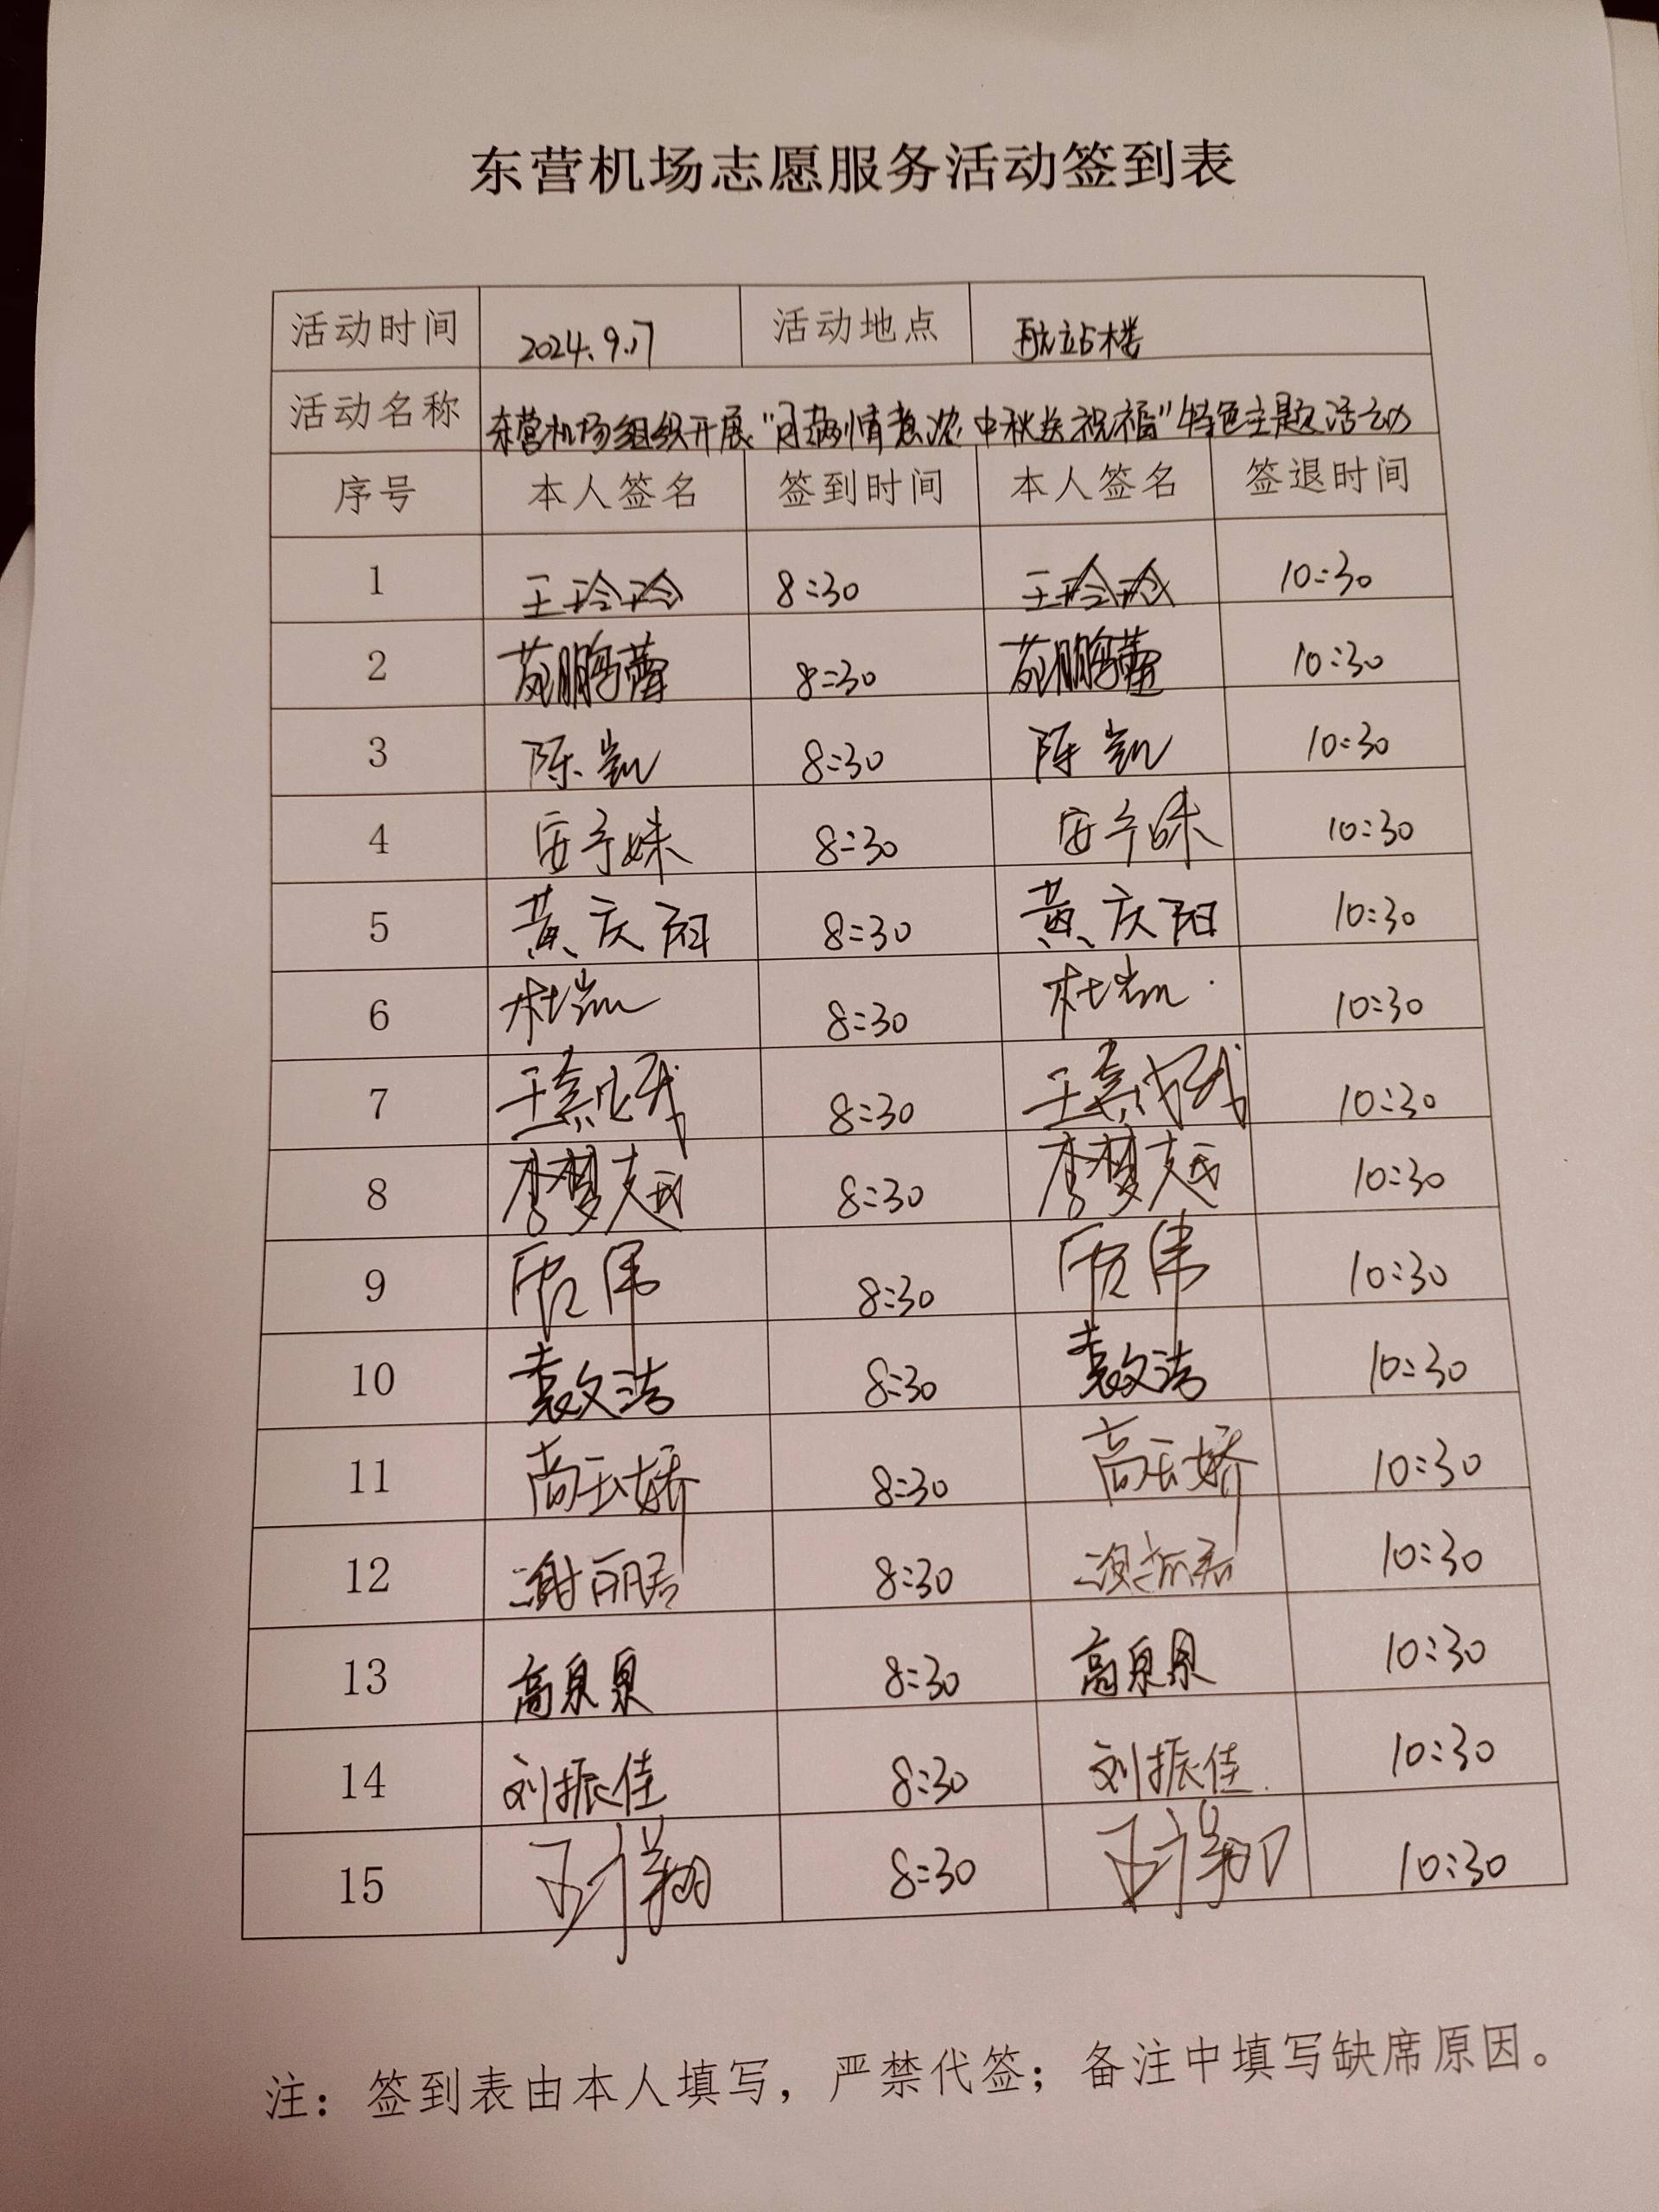 东营机场志愿服务活动签到表
活动时间 2024.9.17 活动地点 航站楼
活动名称 东营机场组织开展“月满情意浓 中秋送祝福”特色主题活动
序号 本人签名 签到时间 本人签名 签退时间
1 王玲玲 8:30 王玲玲 10:30
2 苑鹏蕾 8:30 苑鹏蕾 10:30
3 陈凯 8:30 陈凯 10:30
4 安子姝 8:30 安子姝 10:30
5 黄庆阳 8:30 黄庆阳 10:30
6 杜凯 8:30 杜凯 10:30
7 王素 8:30 王素 10:30
8 李梦 8:30 李梦 10:30
9 伟 8:30 伟 10:30
10 袁文洁 8:30 袁文洁 10:30
11 尚玉娇 8:30 尚玉娇 10:30
12 谢丽君 8:30 谢丽君 10:30
13 高泉泉 8:30 高泉泉 10:30
14 刘振佳 8:30 刘振佳 10:30
15 翔 8:30 翔 10:30
注：签到表由本人填写，严禁代签；备注中填写缺席原因。